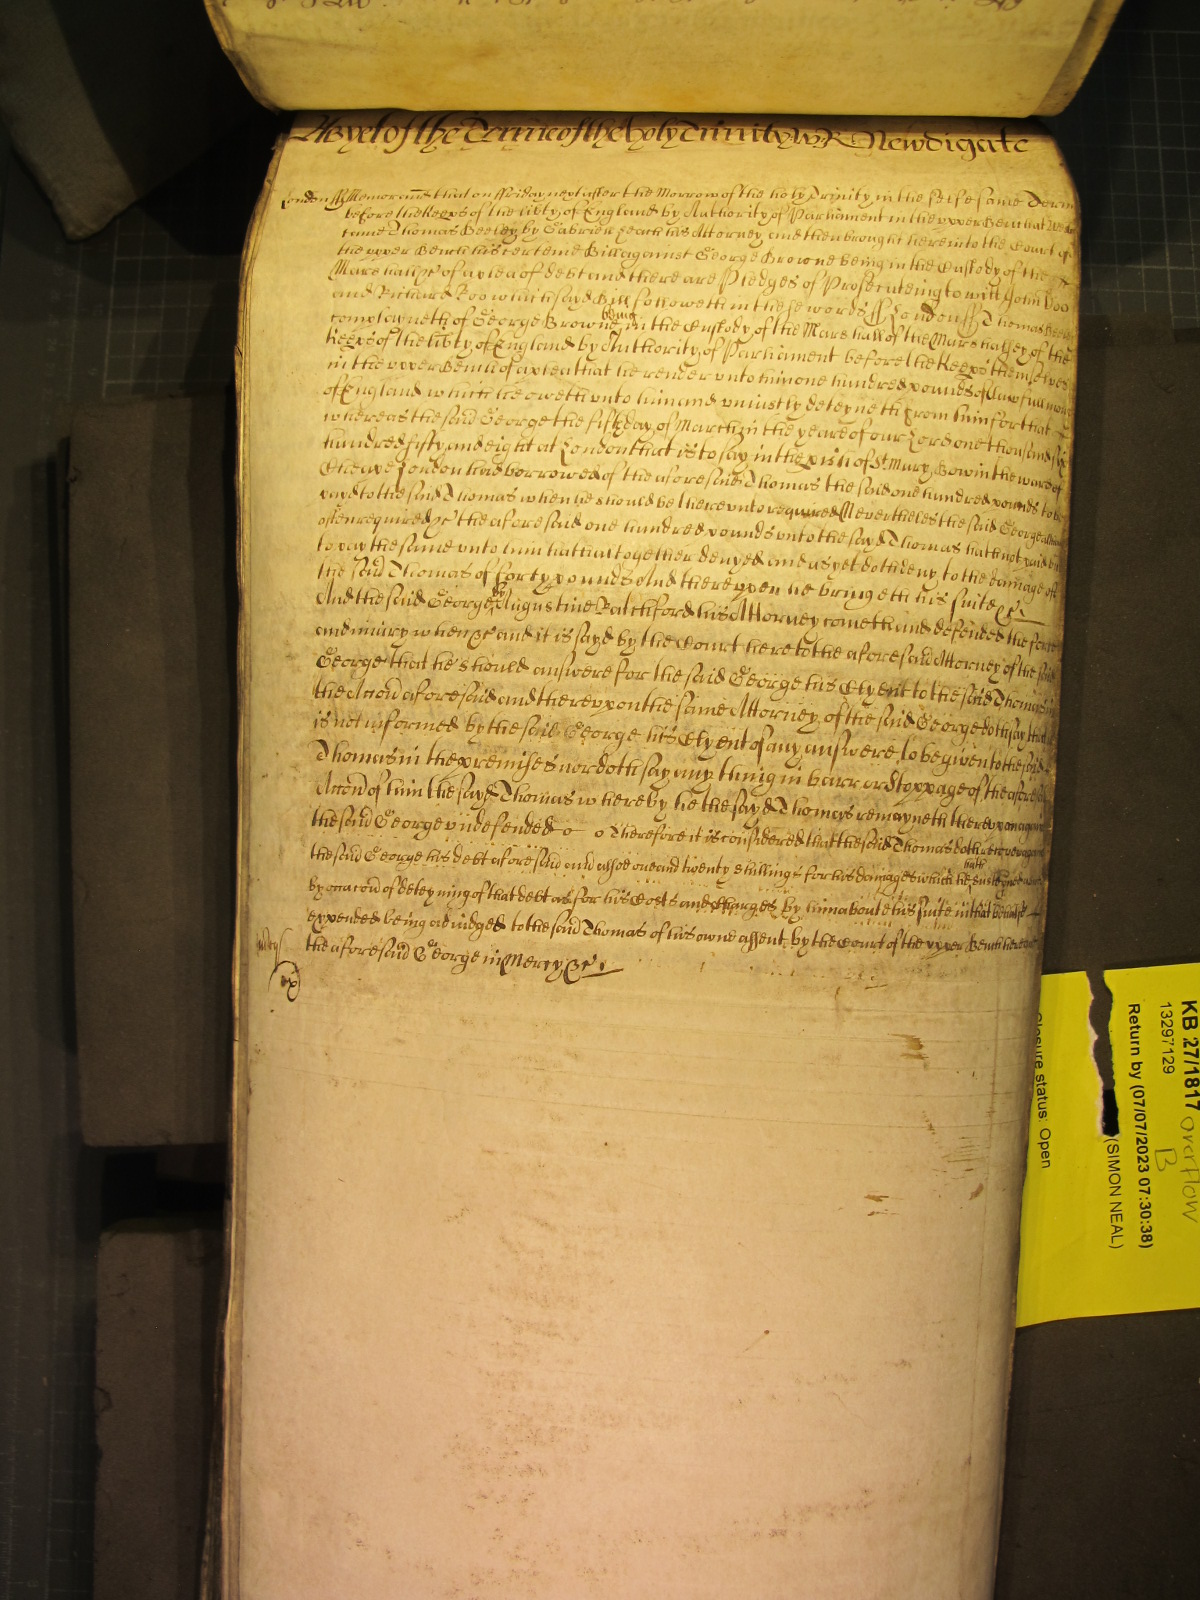 As yet of the Terme of the holy Trinity w R Newdigate
London ss Memorand that on Friday next after the Morrow of the holy Trinity in the selfe same Terme
before the Keeps of the libty of England by Authority of Parliament in the upper Bench at
came Thomas Beeley by Gabriell Leach his Attorney and then brought here into the Court of
the upper Bench his certeine Bill against George Browne being in the Custody of the
Marshall &c of a plea of debt and there are Pledges of Prosecuteing to witt John Doo
and Richard Roo which sayd Bill followeth in these words ss London ss Thomas Beeley
complayneth of George Browne being in the Custody of the Marshall of the Marshalsey of the
Keeps of the libty of England by Authority of Parliament before the Keeps themselves
in the upper Bench of a plea that he render unto him one hundred pounds of lawfull mony
of England which he oweth unto him and uniustly deteyneth from him for that
whereas the said George the fifth day of March in the yeare of our Lord one thousand six
hundred fifty and eight at London that is to say in the pish of St Mary Bow in the ward of
Cheape London had borrowed of the aforesaid Thomas the said one hundred pounds to be
payd to the said Thomas when he should be thereunto required Nevertheles the said George although
often required &c the aforesaid one hundred pounds unto the sayd Thomas hath not paid but
to pay the same unto him hath altogether denyed and as yet doth deny to the damage of
the said Thomas of forty pounds And thereupon he bringeth his suite &c
And the said George by Augustine Ratchford his Attorney cometh and defended the force
and iniury when &c and it is sayd by the Court here to the aforesaid Attorney of the said
George that he should answere for the said George his Clyent to the said Thomas in
the Accon aforesaid and thereupon the same Attorney of the said George doth say that he
is not informed by the said George his Clyent of any answere to be given to the said
Thomas in the premises nor doth say any thing in barr or stoppage of the aforesaid
Accon of him the sayd Thomas whereby he the sayd Thomas remayneth thereupon against
the said George undefended Therefore it is considered that the said Thomas doth recover against
the said George his debt aforesaid and alsoe one and twenty shillings for his damages which he hath susteyned
by occacon of deteyning of that debt as for his Costs and Charges by him about his suite in that behalfe
expended being adiudged to the said Thomas of his owne assent by the Court of the upper Bench here and
the aforesaid George in Mercy &c
KB 27/1817 overflow
B
13297129
Return by (07/07/2023 07:30:38)
(SIMON NEAL)
Closure status: Open